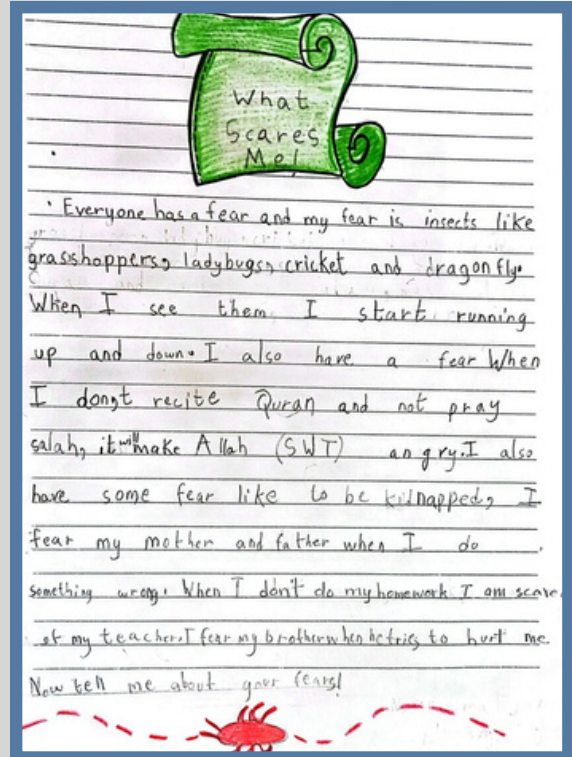 What
Scares
Me!
Everyone has a fear and my fear is insects like
grasshoppers, ladybugs, cricket and dragonfly.
When I see them I start running
up and down. I also have a fear When
I don,t recite Quran and not pray
salah, it will make Allah (SWT) angry. I also
have some fear like to be kidnapped, I
fear my mother and father when I do
something wrong. When I don't do my homework I am scare
of my teacher. I fear my brother when he tries to hurt me
Now tell me about your fears!